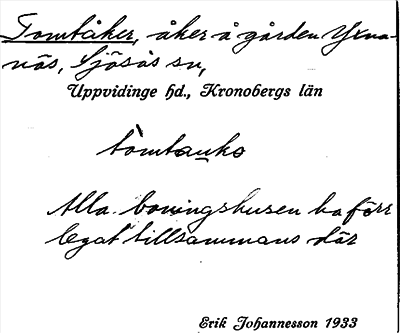 Tomtåker, åker å gården Yxna-
nås, Sjösås sn,
Uppvidinge hd., Kronobergs län
tòmtauko
Alla boningshusen ha förr
legat tillsammans där
Erik Johannesson 1933